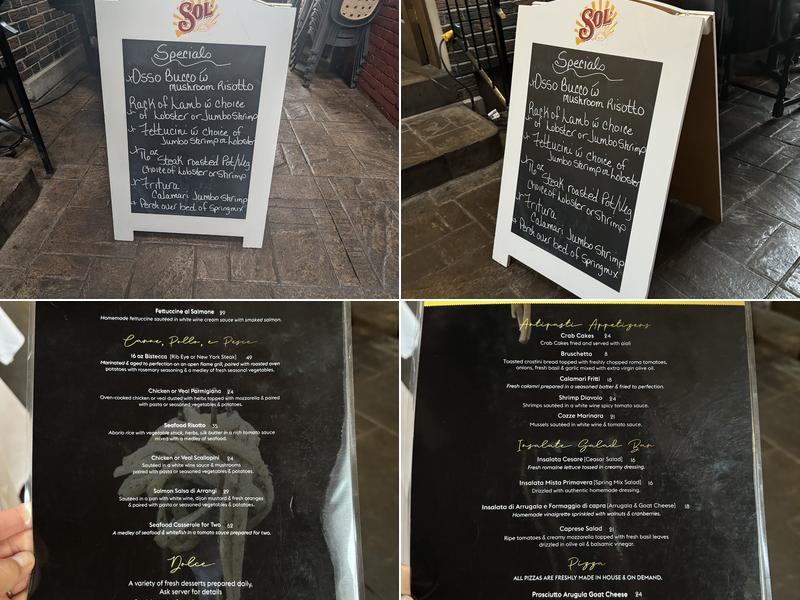 SOL
Specials
Osso Bucco w̄
mushroom Risotto
Rack of Lamb w̄ choice
of Lobster or Jumbo Shrimp
Fettucini w̄ choice of
Jumbo Shrimp or Lobster
16 oz Steak roasted Pot/Veg
Choice of Lobster or Shrimp
Fritura
Calamari Jumbo Shrimp
Perch over bed of Springmix
SOL
Specials
Osso Bucco w̄
mushroom Risotto
Rack of Lamb w̄ choice
of Lobster or Jumbo Shrimp
Fettucini w̄ choice of
Jumbo Shrimp or Lobster
16 oz Steak roasted Pot/Veg
Choice of Lobster or Shrimp
Fritura
Calamari Jumbo Shrimp
Perch over bed of Springmix
Fettuccine al Salmone 29
Homemade fettuccine sautéed in white wine cream sauce with smoked salmon.
Carne, Pollo, e Pesce
16 oz Bistecca [Rib Eye or New York Steak] 49
Marinated & aged to perfection on an open flame grill, paired with roasted oven
potatoes with rosemary seasoning & a medley of fresh seasonal vegetables.
Chicken or Veal Parmigiana 24
Oven-cooked chicken or veal dusted with herbs topped with mozzarella & paired
with pasta or seasoned vegetables & potatoes.
Seafood Risotto 35
Aborio rice with vegetable stock, herbs, silk butter in a rich tomato sauce
mixed with a medley of seafood.
Chicken or Veal Scallopini 24
Sautéed in a white wine sauce & mushrooms
paired with pasta or seasoned vegetables & potatoes.
Salmon Salsa di Arrangi 29
Sautéed in a pan with white wine, dijon mustard & fresh oranges
& paired with pasta or seasoned vegetables & potatoes.
Seafood Casserole for Two 62
A medley of seafood & whitefish in a tomato sauce prepared for two.
Dolce
A variety of fresh desserts prepared daily.
Ask server for details
Antipasti Appetizers
Crab Cakes 24
Crab Cakes fried and served with aioli
Bruschetta 8
Toasted crostini bread topped with freshly chopped roma tomatoes,
onions, fresh basil & garlic mixed with extra virgin olive oil.
Calamari Fritti 18
Fresh calamari prepared in a seasoned batter & fried to perfection.
Shrimp Diavolo 24
Shrimps sautéed in a white wine spicy tomato sauce.
Cozze Marinara 21
Mussels sautéed in white wine & tomato sauce.
Insalate Salad Bar
Insalata Cesare [Ceasar Salad] 16
Fresh romaine lettuce tossed in creamy dressing.
Insalata Misto Primavera [Spring Mix Salad] 16
Drizzled with authentic homemade dressing.
Insalata di Arrugala e Formaggio di capra [Arugala & Goat Cheese] 18
Homemade vinaigrette sprinkled with walnuts & cranberries.
Caprese Salad 21
Ripe tomatoes & creamy mozzarella tapped with fresh basil leaves
drizzled in olive oil & balsamic vinegar.
Pizza
ALL PIZZAS ARE FRESHLY MADE IN HOUSE & ON DEMAND.
Prosciutto Arugula Goat Cheese 24